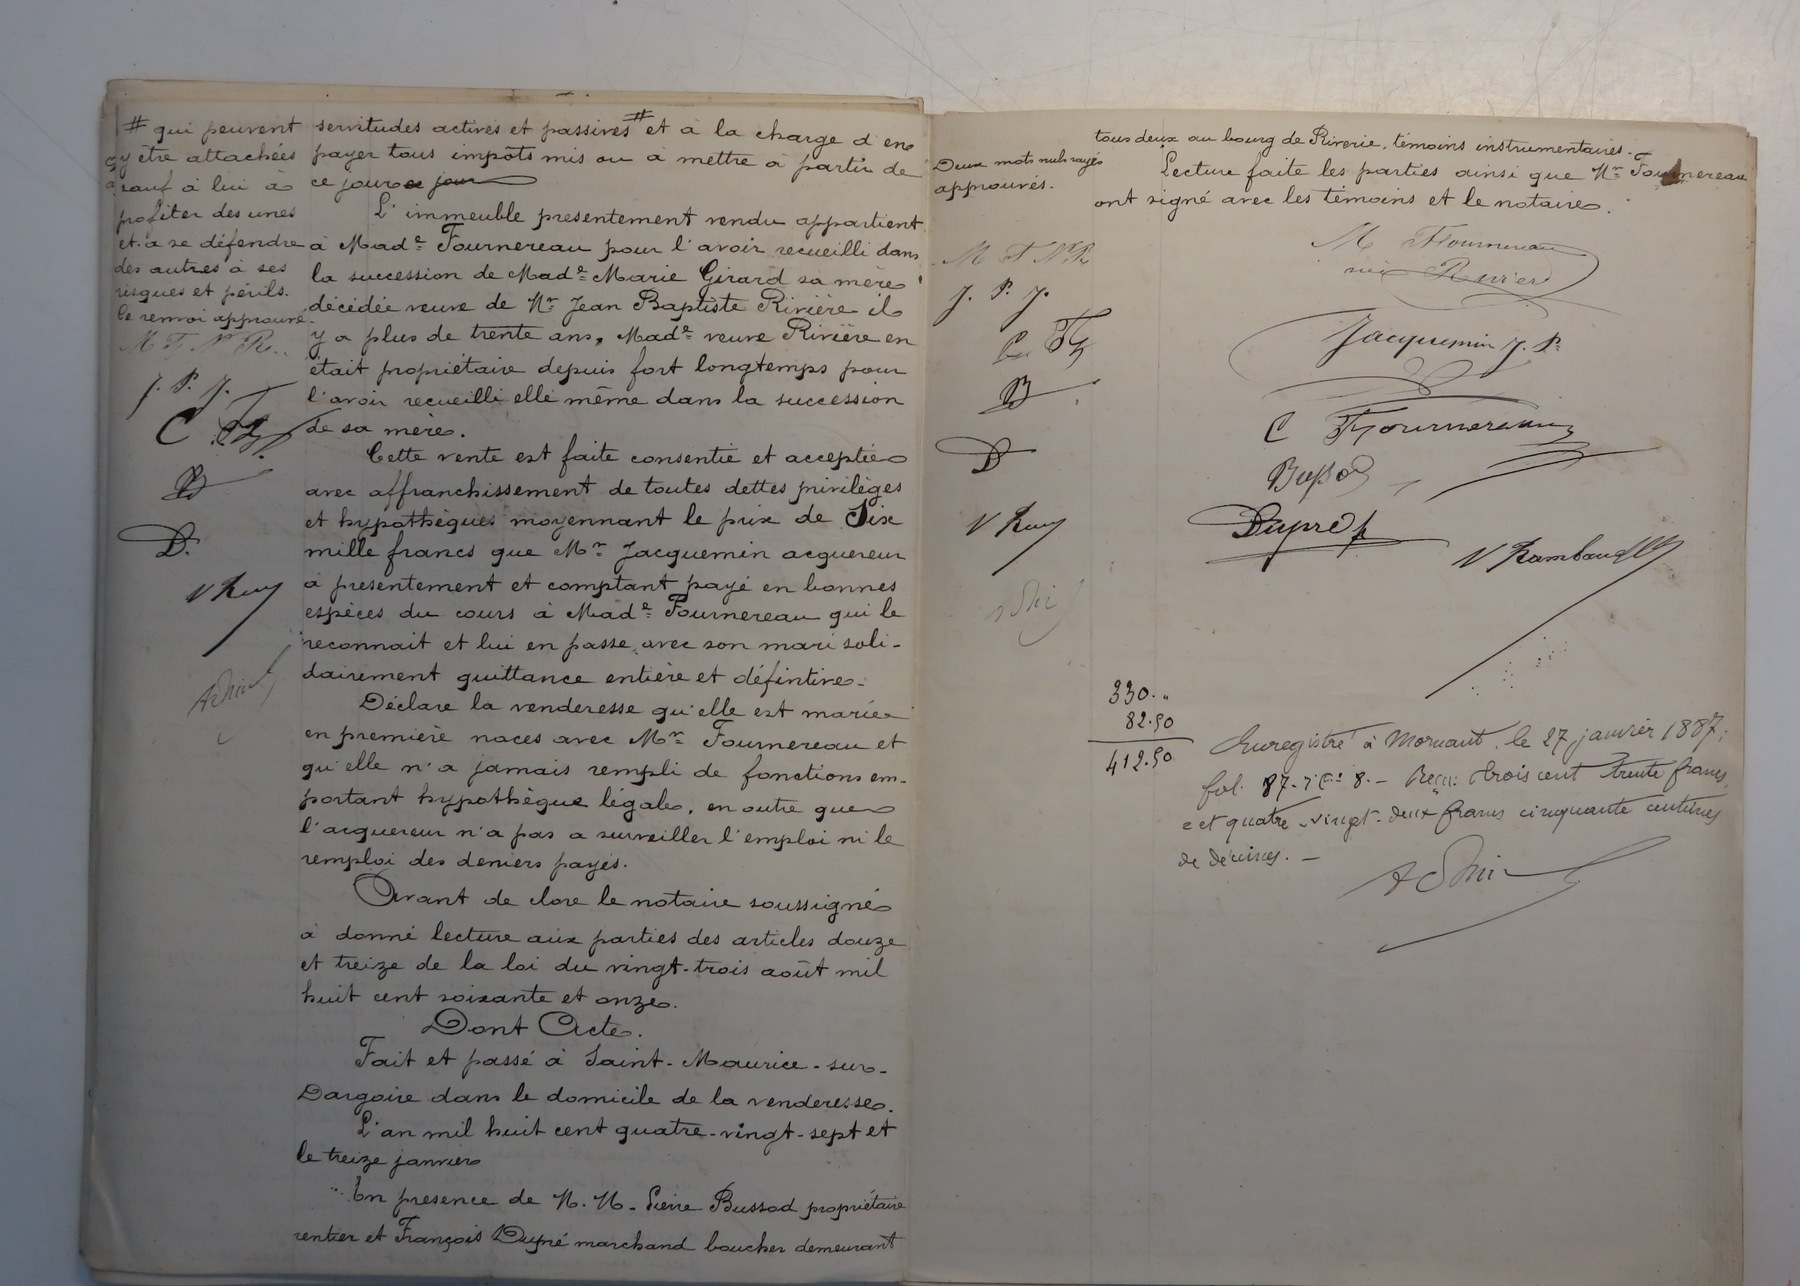 # qui peuvent
y être attachées
sauf à lui à
profiter des unes
et à se défendre
des autres à ses
risques et périls.
le renvoi approuvé.
M F N R.
J. P. J.
C F
B
D.
V Ray
servitudes actives et passives # et à la charge d'en
payer tous impôts mis ou à mettre à partir de
ce jour ce jour
L'immeuble presentement vendu appartient
à Made Fournereau pour l'avoir recueilli dans
la succession de Made Marie Girard sa mère
décédée veuve de Mr Jean Baptiste Rivière il
y a plus de trente ans, Made veuve Rivière en
était propriétaire depuis fort longtemps pour
l'avoir recueilli elle même dans la succession
de sa mère.
Cette vente est faite consentie et acceptée
avec affranchissement de toutes dettes privilèges
et hypothèques moyennant le prix de Six
mille francs que Mr Jacquemin acquereur
à presentement et comptant payé en bonnes
espèces du cours à Made Fournereau qui le
reconnait et lui en passe, avec son mari soli-
dairement quittance entière et défintive.
Déclare la venderesse qu'elle est mariée
en première noces avec Mr Fournereau et
qu'elle n'a jamais rempli de fonctions em-
portant hypothèque légale, en outre que
l'acquereur n'a pas a surveiller l'emploi ni le
remploi des deniers payés.
Avant de clore le notaire soussigné
à donné lecture aux parties des articles douze
et treize de la loi du vingt-trois août mil
huit cent soixante et onze.
Dont Acte.
Fait et passé à Saint-Maurice-sur-
Dargoire dans le domicile de la venderesse.
L'an mil huit cent quatre-vingt-sept et
le treize janvier
En presence de M. M. Pierre Bussod propriétaire
rentier et François Dupré marchand boucher demeurant
tous deux au bourg de Riverie, témoins instrumentaires.
Deux mots nuls rayés
approuvés.
Lecture faite les parties ainsi que Mr Fournereau
ont signé avec les témoins et le notaire.
M F N R
J. P. J.
C F
B
D
V Ray
M Fournereau
née Rivier
Jacquemin J. P.
C Fournereau
Bussod
Dupré f
V Rambaud
330. "
82.50
412.50
Enregistré à Mornant, le 27 janvier 1887;
fol. 87. r Ce 8. - Reçu: trois cent trente francs,
et quatre-vingt-deux francs cinquante centimes
de décimes. -